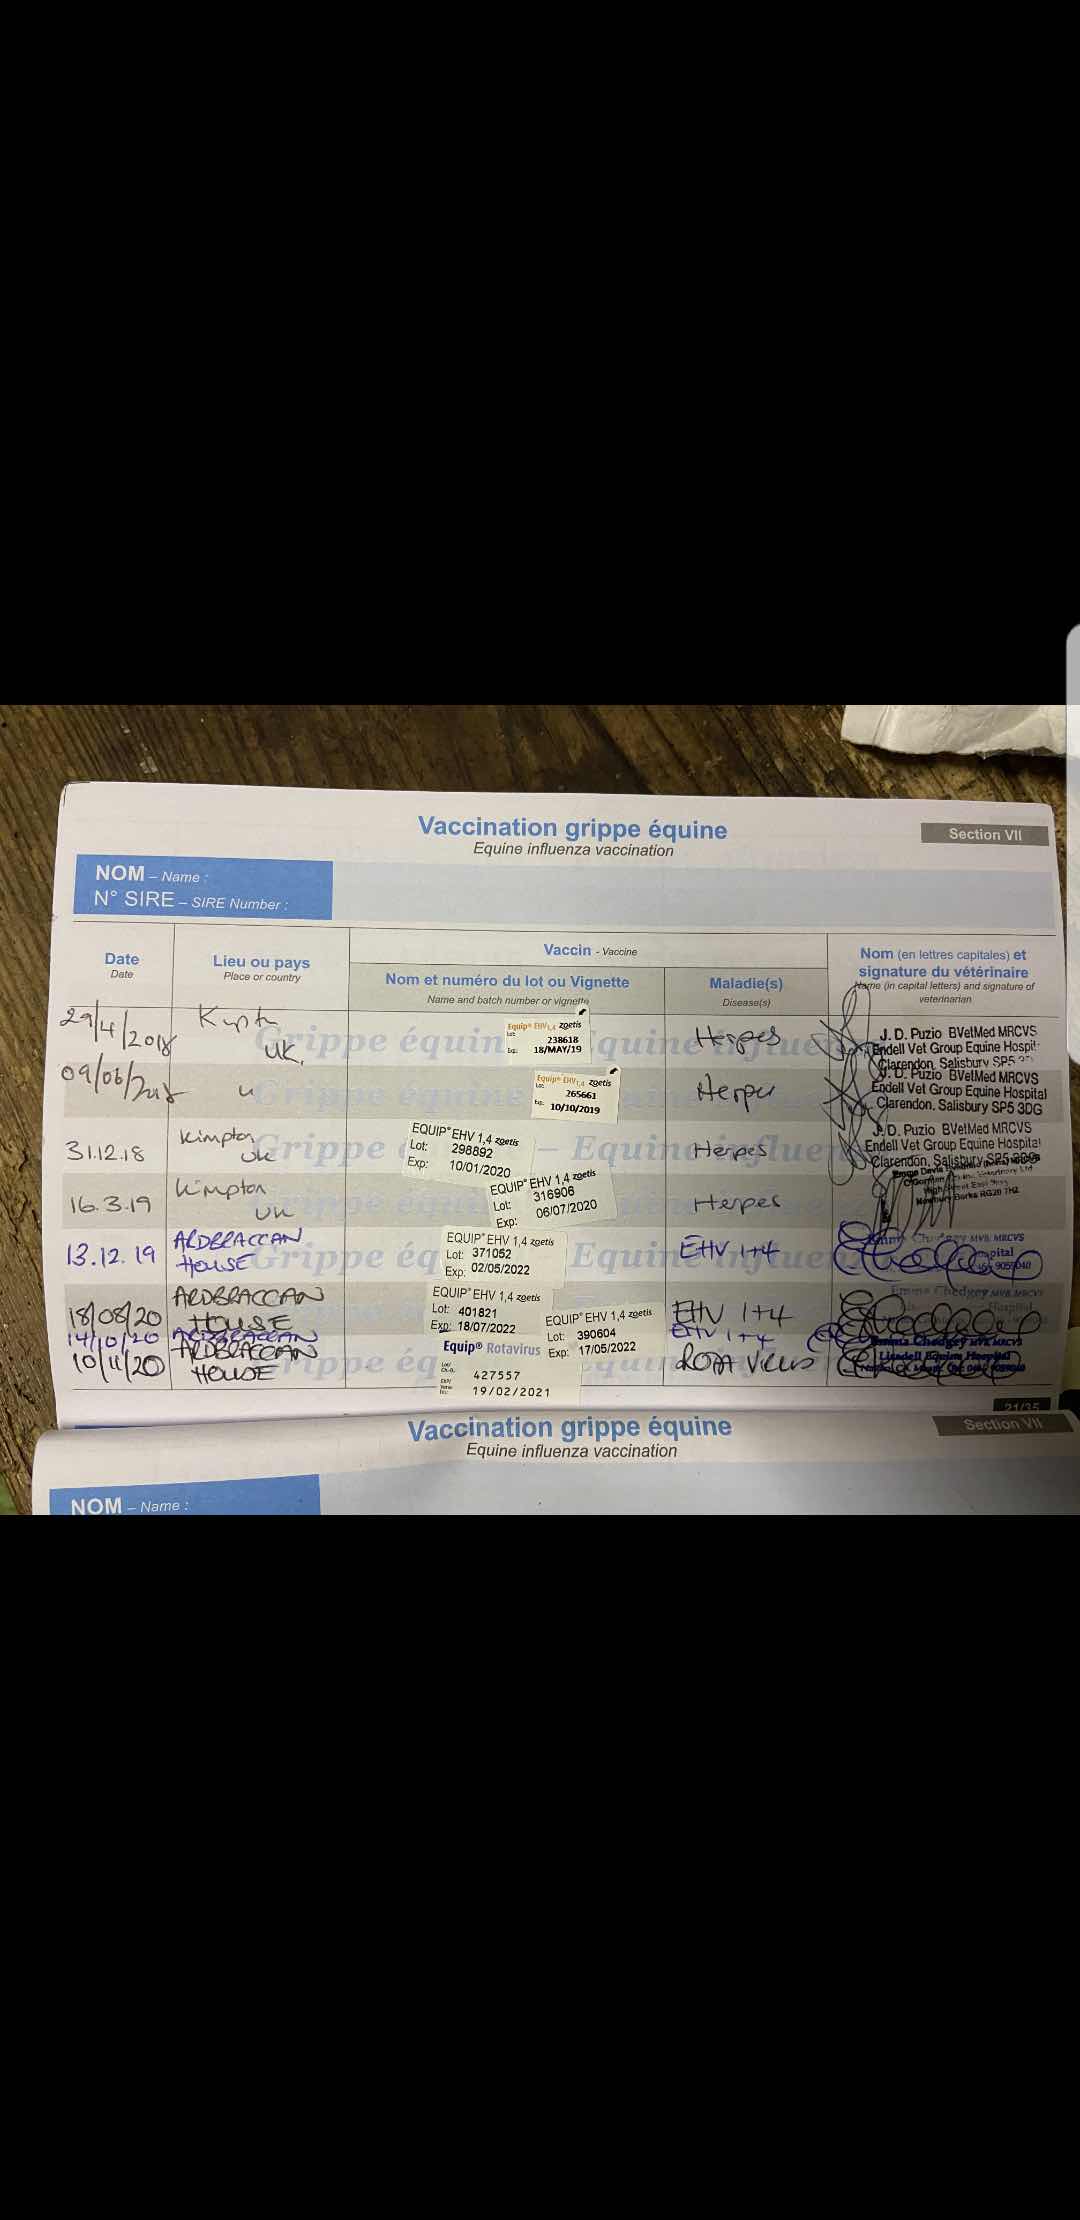 Vaccination grippe équine
Equine influenza vaccination
Section VII
NOM – Name :
N° SIRE – SIRE Number :
Date
Date
Lieu ou pays
Place or country
Vaccin - Vaccine
Nom et numéro du lot ou Vignette
Name and batch number or vignette
Maladie(s)
Disease(s)
Nom (en lettres capitales) et
signature du vétérinaire
Name (in capital letters) and signature of
veterinarian
29/4/2018
UK,
Equip® EHV1,4 zoetis
Lot: 238618
Exp: 18/MAY/19
Herpes
J. D. Puzio BVetMed MRCVS
Endell Vet Group Equine Hospit
Clarendon, Salisbury SP5
09/06/2018
Equip® EHV1,4 zoetis
Lot: 265661
Exp: 10/10/2019
Herpes
J. D. Puzio BVetMed MRCVS
Endell Vet Group Equine Hospital
Clarendon, Salisbury SP5 3DG
31.12.18
Kimpton
UK
EQUIP® EHV 1,4 zoetis
Lot: 298892
Exp: 10/01/2020
Herpes
J. D. Puzio BVetMed MRCVS
Endell Vet Group Equine Hospital
Clarendon, Salisbury SP5 3DG
16.3.19
Kimpton
UK
EQUIP® EHV 1,4 zoetis
Lot: 316906
Exp: 06/07/2020
Herpes
Newbury Berks RG20 7HZ
13.12.19
ARDBRACCAN
HOUSE
EQUIP® EHV 1,4 zoetis
Lot: 371052
Exp: 02/05/2022
EHV 1+4
MVB MRCVS
18/08/20
ARDBRACCAN
HOUSE
EQUIP® EHV 1,4 zoetis
Lot: 401821
Exp: 18/07/2022
EHV 1+4
Emma Chedgey MVB MRCVS
Hospital
14/10/20
ARDBRACCAN
EQUIP® EHV 1,4 zoetis
Lot: 390604
Exp: 17/05/2022
EHV 1+4
Emma Chedgey MVB MRCVS
10/11/20
ARDBRACCAN
HOUSE
Equip® Rotavirus
427557
19/02/2021
ROTA VIRUS
21/35
Vaccination grippe équine
Equine influenza vaccination
Section VII
NOM – Name :